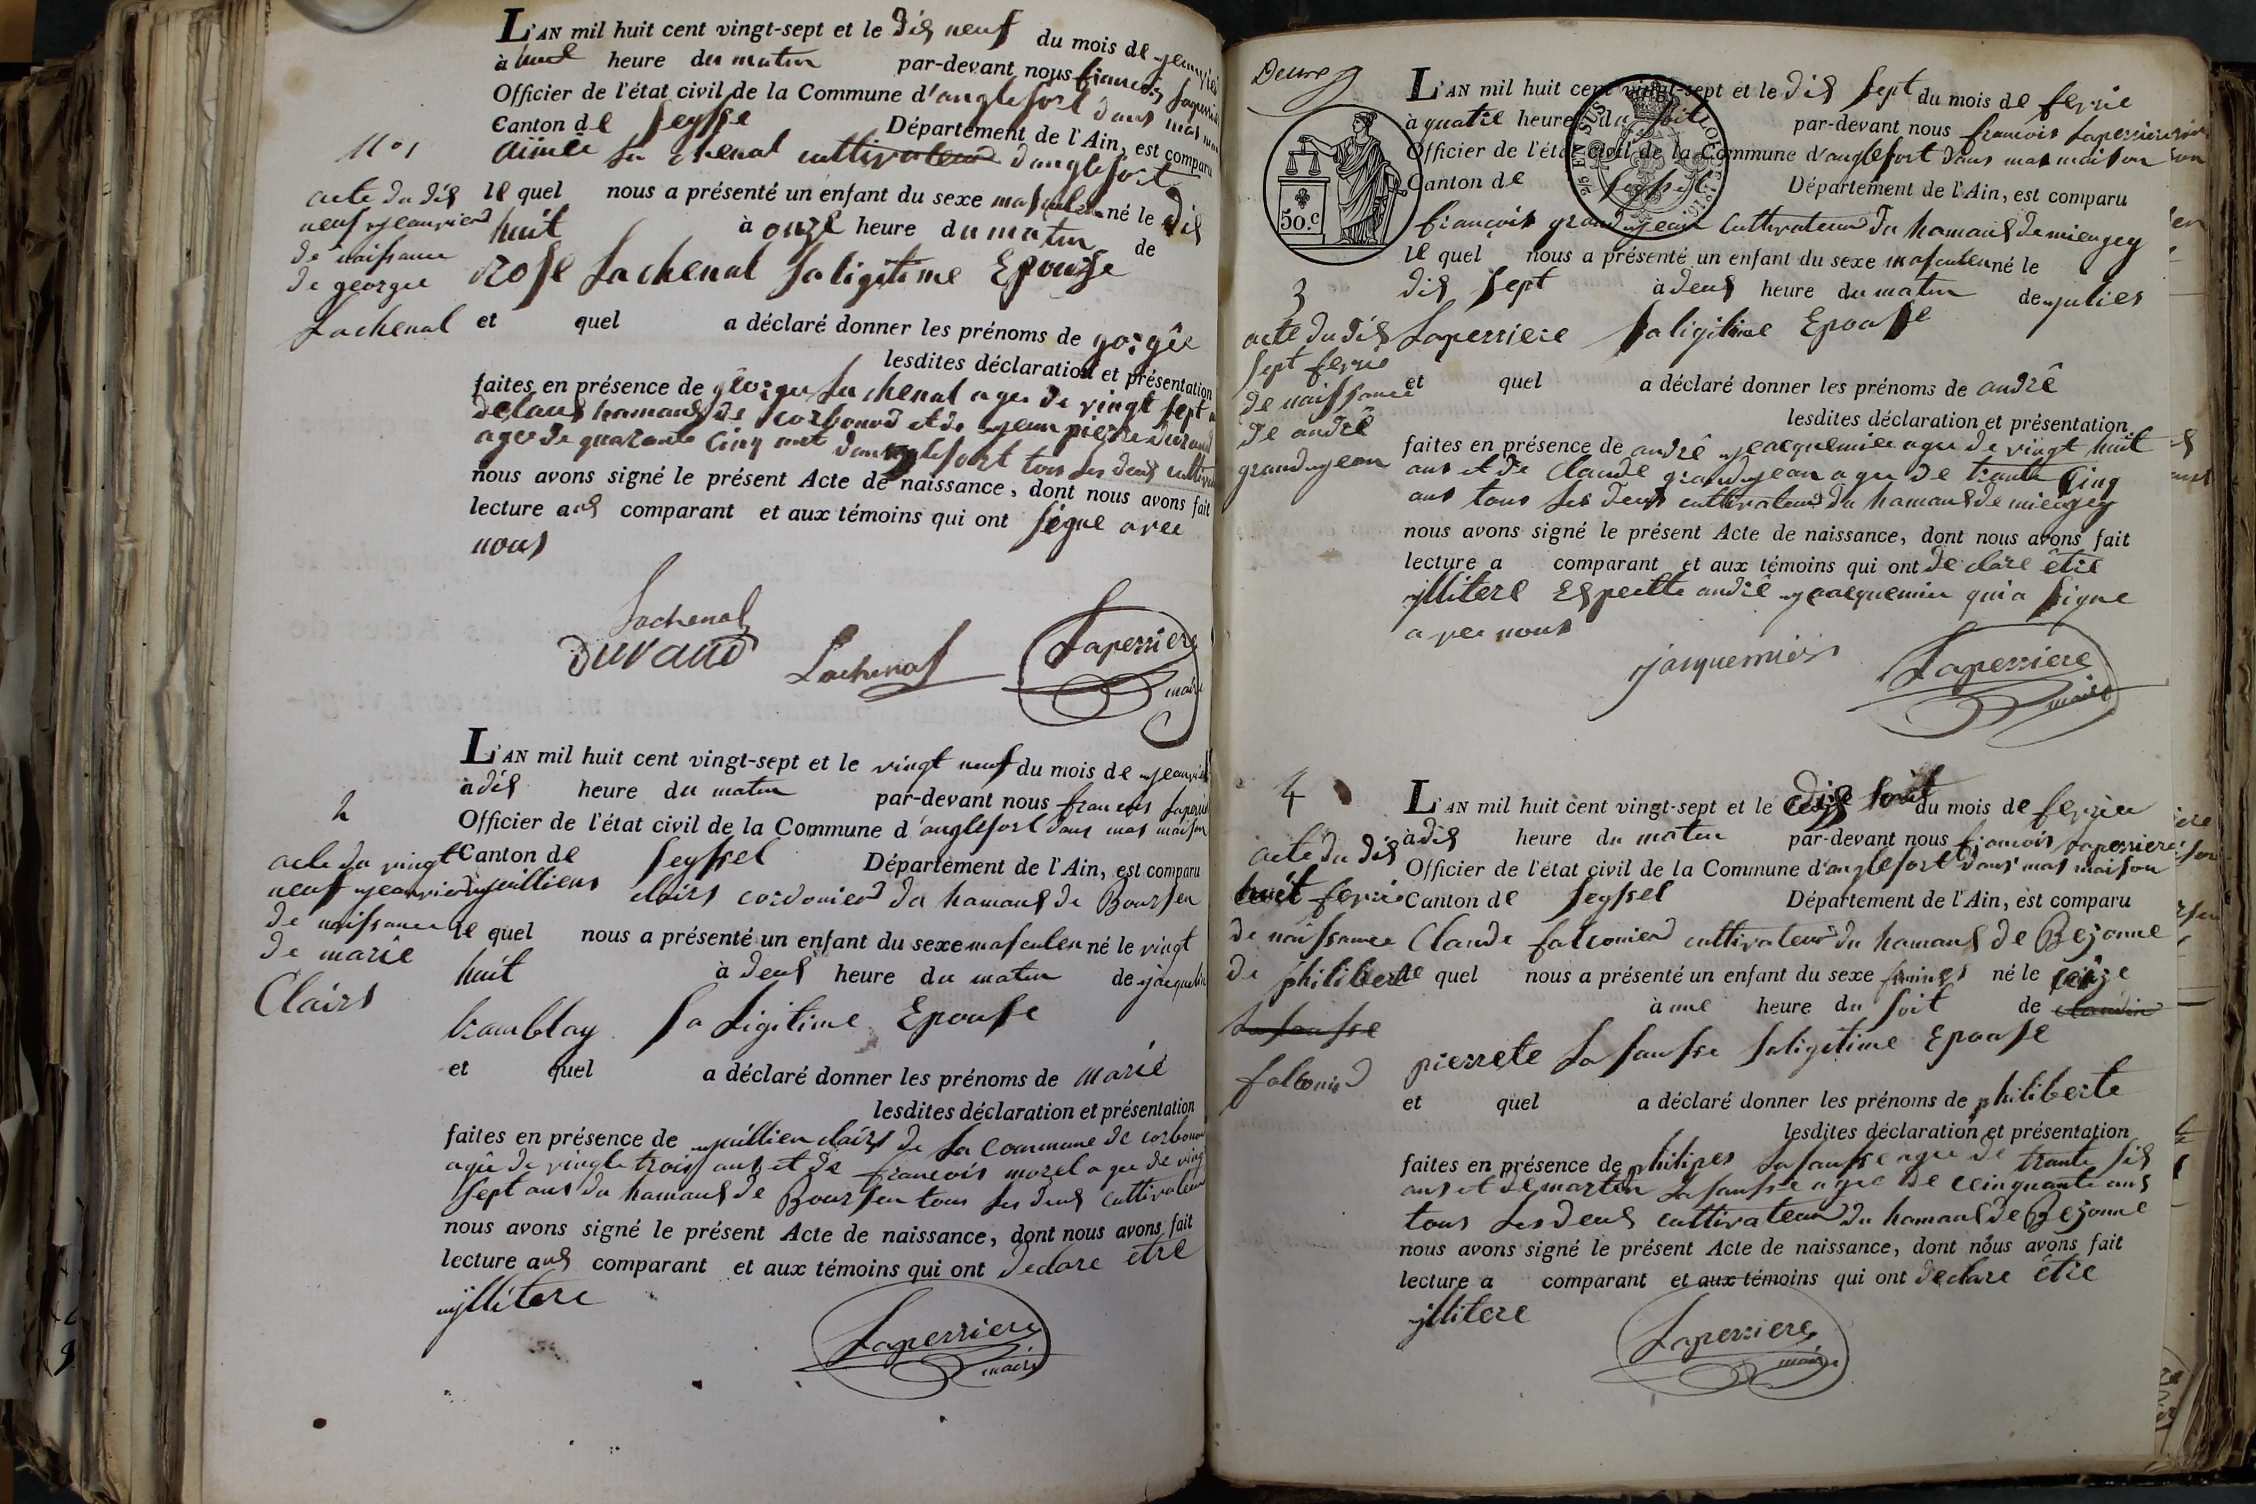 L'AN mil huit cent vingt-sept et le dis neuf du mois de jeanvier
à huit heure du matin par-devant nous francois Laperriere
Officier de l'état civil de la Commune d'anglefort dans mas
Canton de Seyssel Département de l'Ain, est comparu
aimée La chenal cultivateur d'anglefort
le quel nous a présenté un enfant du sexe masculen né le dis
huit à onze heure du matin de
rose Lachenal Saligitime Epouse
et quel a déclaré donner les prénoms de
lesdites déclaration et présentation
faites en présence de george Lachenal agee de vingt sept
hamaus de corbonod et de jean pierre durand
agee de quarante Cinq ans tous Les deus
nous avons signé le présent Acte de naissance, dont nous avons fait
lecture aus comparant et aux témoins qui ont signe avec
nous
N° 1
acte du dis
neuf jeanvier
de naissance
de george
Lachenal
Lachenal
DURAND
Lachenal
Laperriere
maire
L'AN mil huit cent vingt-sept et le vingt neuf du mois de jeanvier
à dis heure du matin par-devant nous francois Laperriere
Officier de l'état civil de la Commune d'anglefort dans mas maison
Canton de Seyssel Département de l'Ain, est comparu
juilliens clairs cordonier du hamaus de Boursen
le quel nous a présenté un enfant du sexe masculen né le vingt
huit à deus heure du matin de jacqueline
tramblay sa Ligitime Epouse
et quel a déclaré donner les prénoms de marie
lesdites déclaration et présentation
faites en présence de juillien clairs de La Commune de corbonod
agê de vingte trois ans et de francois morel agee de vingt
sept ans du hamaus de Boursen tous Les deus cultivateur
nous avons signé le présent Acte de naissance, dont nous avons fait
lecture aus comparant et aux témoins qui ont declare être
jllitere
2
acte du vingt
neuf jeanvier
de naissance
de marie
Clairs
Laperriere
maire
Deure
50.c
25 EN SUS
LOI DE 1816
L'AN mil huit cent vingt-sept et le dis sept du mois de fevrie
à quatre heure du soit par-devant nous francois Laperriere
Officier de l'état civil de la Commune d'anglefort dans mas maison
Canton de Seyssel Département de l'Ain, est comparu
françois grandjean Cultivateur du hamaus de miengey
le quel nous a présenté un enfant du sexe masculen né le
dis sept à deus heure du matin de julies
Laperriere Saligitime Epouse
et quel a déclaré donner les prénoms de andrê
lesdites déclaration et présentation
faites en présence de andrê jeacquemier agee de vingt huit
ans et de Claude grandjean agee de trante Cinq
ans tous Les deus cultivateur du hamaus de miengey
nous avons signé le présent Acte de naissance, dont nous avons fait
lecture a comparant et aux témoins qui ont de clare être
jllitere Espectte andrê jeacquemier qui a signe
avec nous
3
acte du dis
sept fevrie
de naissance
de andrê
grandjean
jacquemier
Laperriere
maire
L'AN mil huit cent vingt-sept et le du mois de fevrier
à dis heure du matin par-devant nous francois Laperriere
Officier de l'état civil de la Commune d'anglefort dans mas maison
Canton de Seyssel Département de l'Ain, est comparu
Claude falconier cultivateur du hamaus de Bezonne
le quel nous a présenté un enfant du sexe né le
à une heure du soit de claudin
pierrete La sausse Saligitime Epouse
et quel a déclaré donner les prénoms de philiberte
lesdites déclaration et présentation
faites en présence de philipes Lasausse agee de trante sis
ans et de marten Lasausse agee de cinquante ans
tous Les deus cultivateur du hamaus de Bezonne
nous avons signé le présent Acte de naissance, dont nous avons fait
lecture a comparant et aux témoins qui ont declare être
jllitere
4
acte du dis
huit fevrie
de naissance
de philiberte
La sausse
falconier
Laperriere
maire